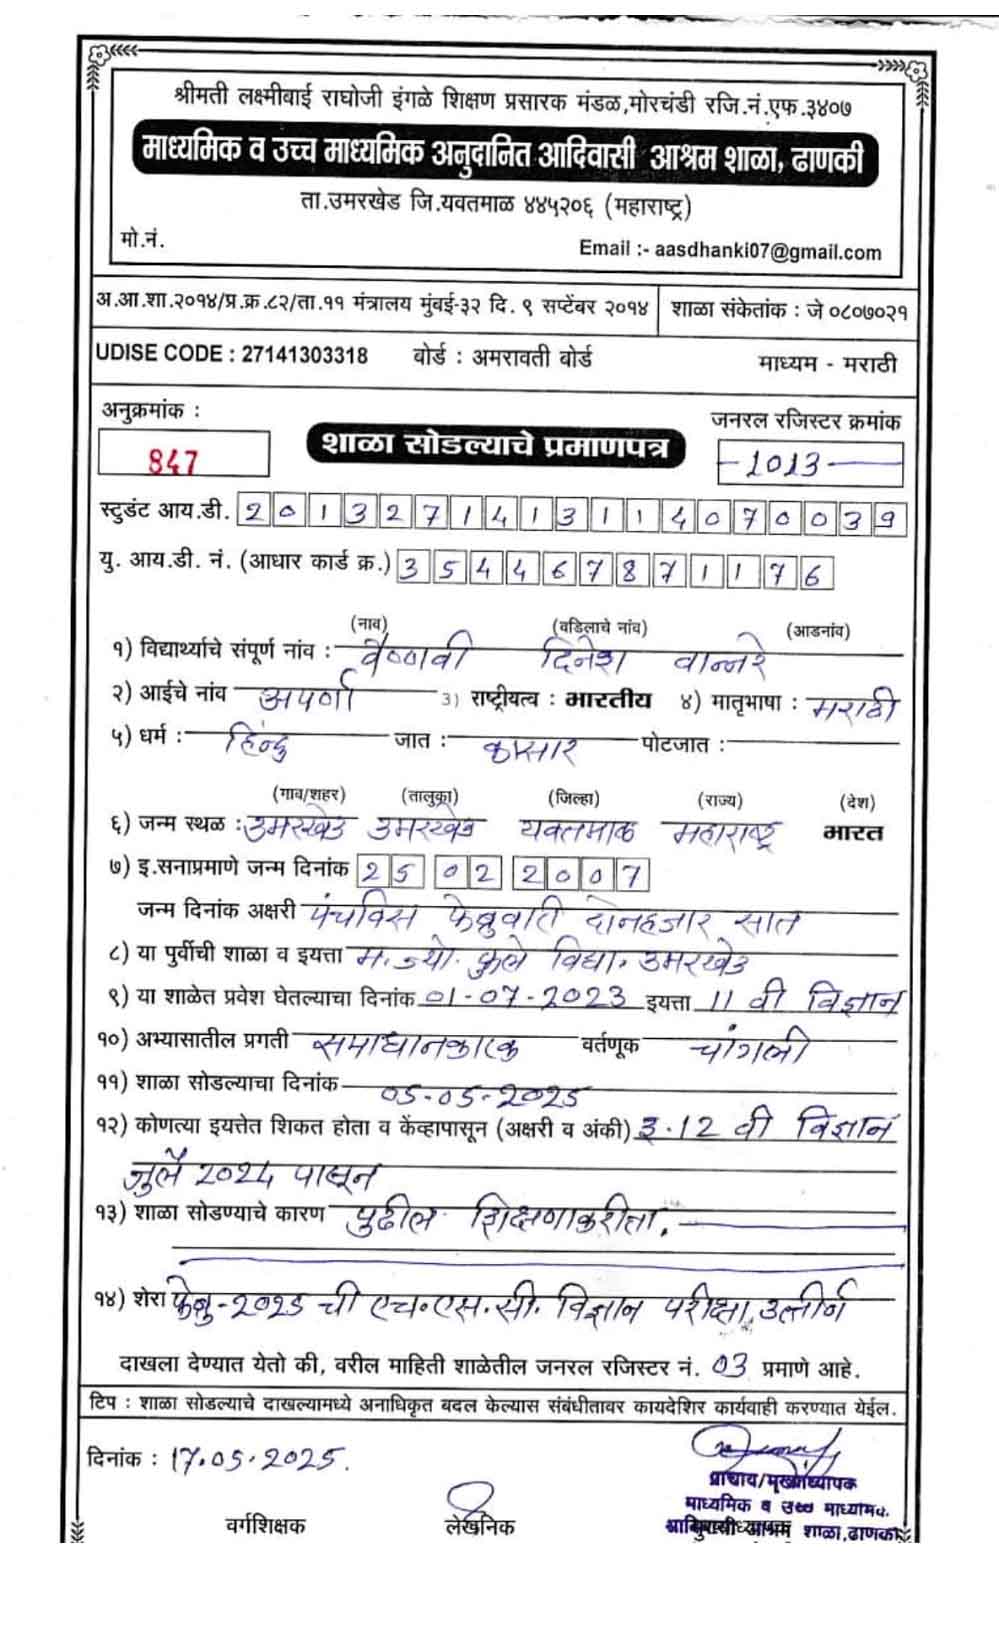 श्रीमती लक्ष्मीबाई राघोजी इंगळे शिक्षण प्रसारक मंडळ,मोरचंडी रजि.नं.एफ.३४०७
माध्यमिक व उच्च माध्यमिक अनुदानित आदिवासी आश्रम शाळा, ढाणकी
ता.उमरखेड जि.यवतमाळ ४४५२०६ (महाराष्ट्र)
मो.नं.
Email :- aasdhanki07@gmail.com
अ.आ.शा.२०१४/प्र.क्र.८२/ता.११ मंत्रालय मुंबई-३२ दि. ९ सप्टेंबर २०१४ शाळा संकेतांक : जे ०८०७०२१
UDISE CODE : 27141303318 बोर्ड : अमरावती बोर्ड माध्यम - मराठी
अनुक्रमांक : जनरल रजिस्टर क्रमांक
847 शाळा सोडल्याचे प्रमाणपत्र 1013
स्टुडंट आय.डी. 2013271413114070039
यु. आय.डी. नं. (आधार कार्ड क्र.) 354467871176
(नाव) (वडिलाचे नांव) (आडनांव)
१) विद्यार्थ्याचे संपूर्ण नांव : वैष्णवी दिनेश वान्नरे
२) आईचे नांव अपर्णा 3) राष्ट्रीयत्व : भारतीय ४) मातृभाषा : मराठी
५) धर्म : हिंन्दु जात : कासार पोटजात :
(गाव/शहर) (तालुका) (जिल्हा) (राज्य) (देश)
६) जन्म स्थळ : उमरखेड उमरखेड यवतमाळ महाराष्ट्र भारत
७) इ.सनाप्रमाणे जन्म दिनांक 25 02 2007
जन्म दिनांक अक्षरी पंचविस फेब्रुवारी दोनहजार सात
८) या पुर्वीची शाळा व इयत्ता म.ज्यो. फुले विद्या. उमरखेड
९) या शाळेत प्रवेश घेतल्याचा दिनांक 01-07-2023 इयत्ता 11 वी विज्ञान
१०) अभ्यासातील प्रगती समाधानकारक वर्तणूक चांगली
११) शाळा सोडल्याचा दिनांक 05-05-2025
१२) कोणत्या इयत्तेत शिकत होता व केंव्हापासून (अक्षरी व अंकी) इ.12 वी विज्ञान
जुलै 2024 पासून
१३) शाळा सोडण्याचे कारण पुढील शिक्षणाकरीता.
१४) शेरा फेब्रु-2025 ची एच.एस.सी. विज्ञान परीक्षा उत्तीर्ण
दाखला देण्यात येतो की, वरील माहिती शाळेतील जनरल रजिस्टर नं. 03 प्रमाणे आहे.
टिप : शाळा सोडल्याचे दाखल्यामध्ये अनाधिकृत बदल केल्यास संबंधीतावर कायदेशिर कार्यवाही करण्यात येईल.
दिनांक : 17.05.2025.
प्राचार्य/मुख्याध्यापक
माध्यमिक व उच्च माध्यमिक
वर्गशिक्षक लेखनिक आश्रम शाळा,ढाणकी